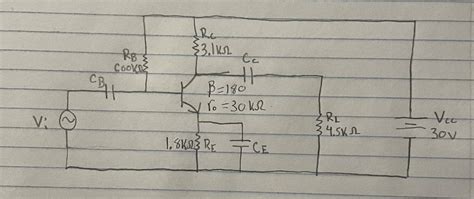 RC
3.1KΩ
RB
600KΩ
CC
CB
β=180
ro=30KΩ
Vi
RL
4.5KΩ
VCC
30V
1.8KΩ RE
CE